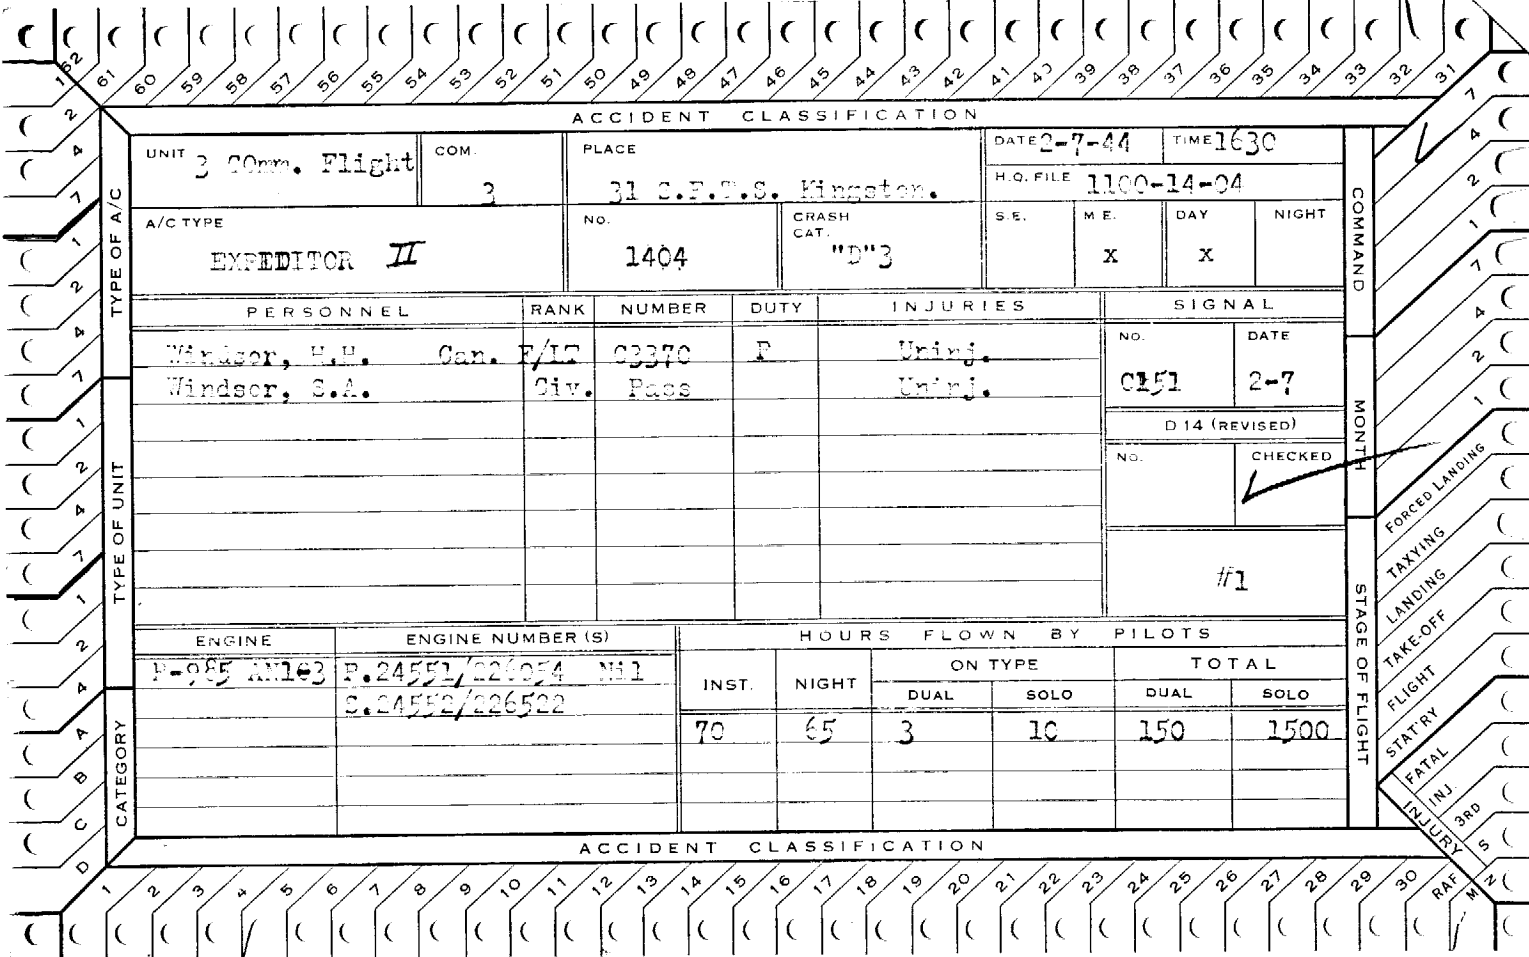 162 61 60 59 58 57 56 55 54 53 52 51 50 49 48 47 46 45 44 43 42 41 40 39 38 37 36 35 34 33 32 31
ACCIDENT CLASSIFICATION
UNIT 3 COmm. Flight
COM. 3
PLACE 31 S.F.T.S. Kingston.
DATE 2-7-44 TIME 1630
H.Q. FILE 1100-14-04
A/C TYPE EXPEDITOR II
NO. 1404
CRASH CAT. "D"3
S.E. M E. DAY NIGHT
X X
PERSONNEL RANK NUMBER DUTY INJURIES SIGNAL
Windsor, H.H. Can. F/LT C3370 P Uninj.
Windsor, S.A. Civ. Pass Uninj.
NO. DATE
C151 2-7
D 14 (REVISED)
NO. CHECKED
#1
ENGINE ENGINE NUMBER (S) HOURS FLOWN BY PILOTS
R-985 AN1&3 P.24551/226054 Nil
S.24552/226522
INST. NIGHT ON TYPE TOTAL
DUAL SOLO DUAL SOLO
70 65 3 10 150 1500
ACCIDENT CLASSIFICATION
1 2 3 4 5 6 7 8 9 10 11 12 13 14 15 16 17 18 19 20 21 22 23 24 25 26 27 28 29 30 RAF M N
TYPE OF A/C
2 4 7 1 2 4 7
TYPE OF UNIT
1 2 4 7 1 2 4
CATEGORY
A B C D
COMMAND
7 4 2 1
MONTH
7 4 2 1
STAGE OF FLIGHT
FORCED LANDING
TAXYING
LANDING
TAKE-OFF
FLIGHT
STAT'RY
INJURY
FATAL
INJ.
3RD
S